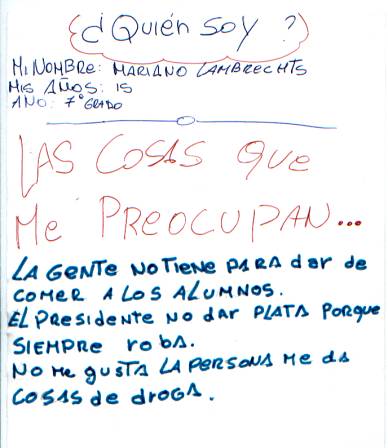 ¿Quién soy?
Mi NOMBRE: MARIANO LAMBRECHTS
Mis AÑOS: 15
AÑO: 7° GRADO
LAS COSAS QUE
Me PREOCUPAN...
LA GeNTe NO TIENE PARA dar de
COMER A LOS ALUMNOS.
EL PResidente NO dAR PLATA PORQUE
SIEMPRE roba.
NO Me gusTA LA PERSONA Me da
COSAS de droga.